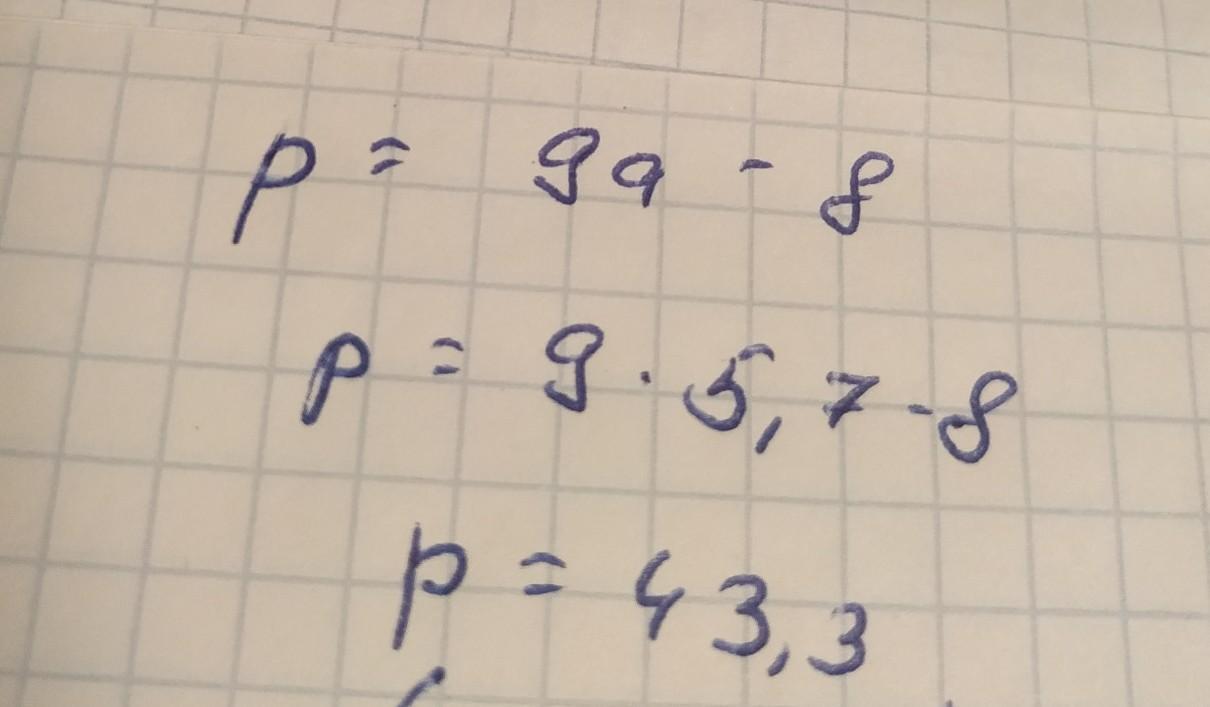 p = 9a - 8
p = 9 · 5,7 - 8
p = 43,3